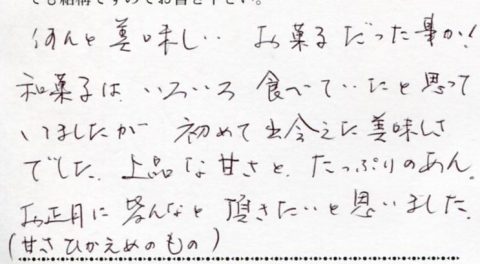 でも結構ですのでお書き下さい。
何んと美味しい お菓子だった事か!
和菓子は いろいろ 食べていたと思って
いましたが 初めて出会えた美味しさ
でした。上品な甘さと、たっぷりのあん。
お正月に 皆んなと 頂きたいと思いました。
(甘さひかえめのもの)